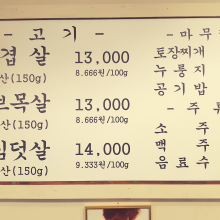 - 고 기 -
겹 살 13,000
산(150g) 8.666원/100g
브목살 13,000
산(150g) 8.666원/100g
심덧살 14,000
산(150g) 9.333원/100g
- 마 무
토장찌개
누 룽 지
공 기 밥
- 주
소 주
맥 주
음 료 수